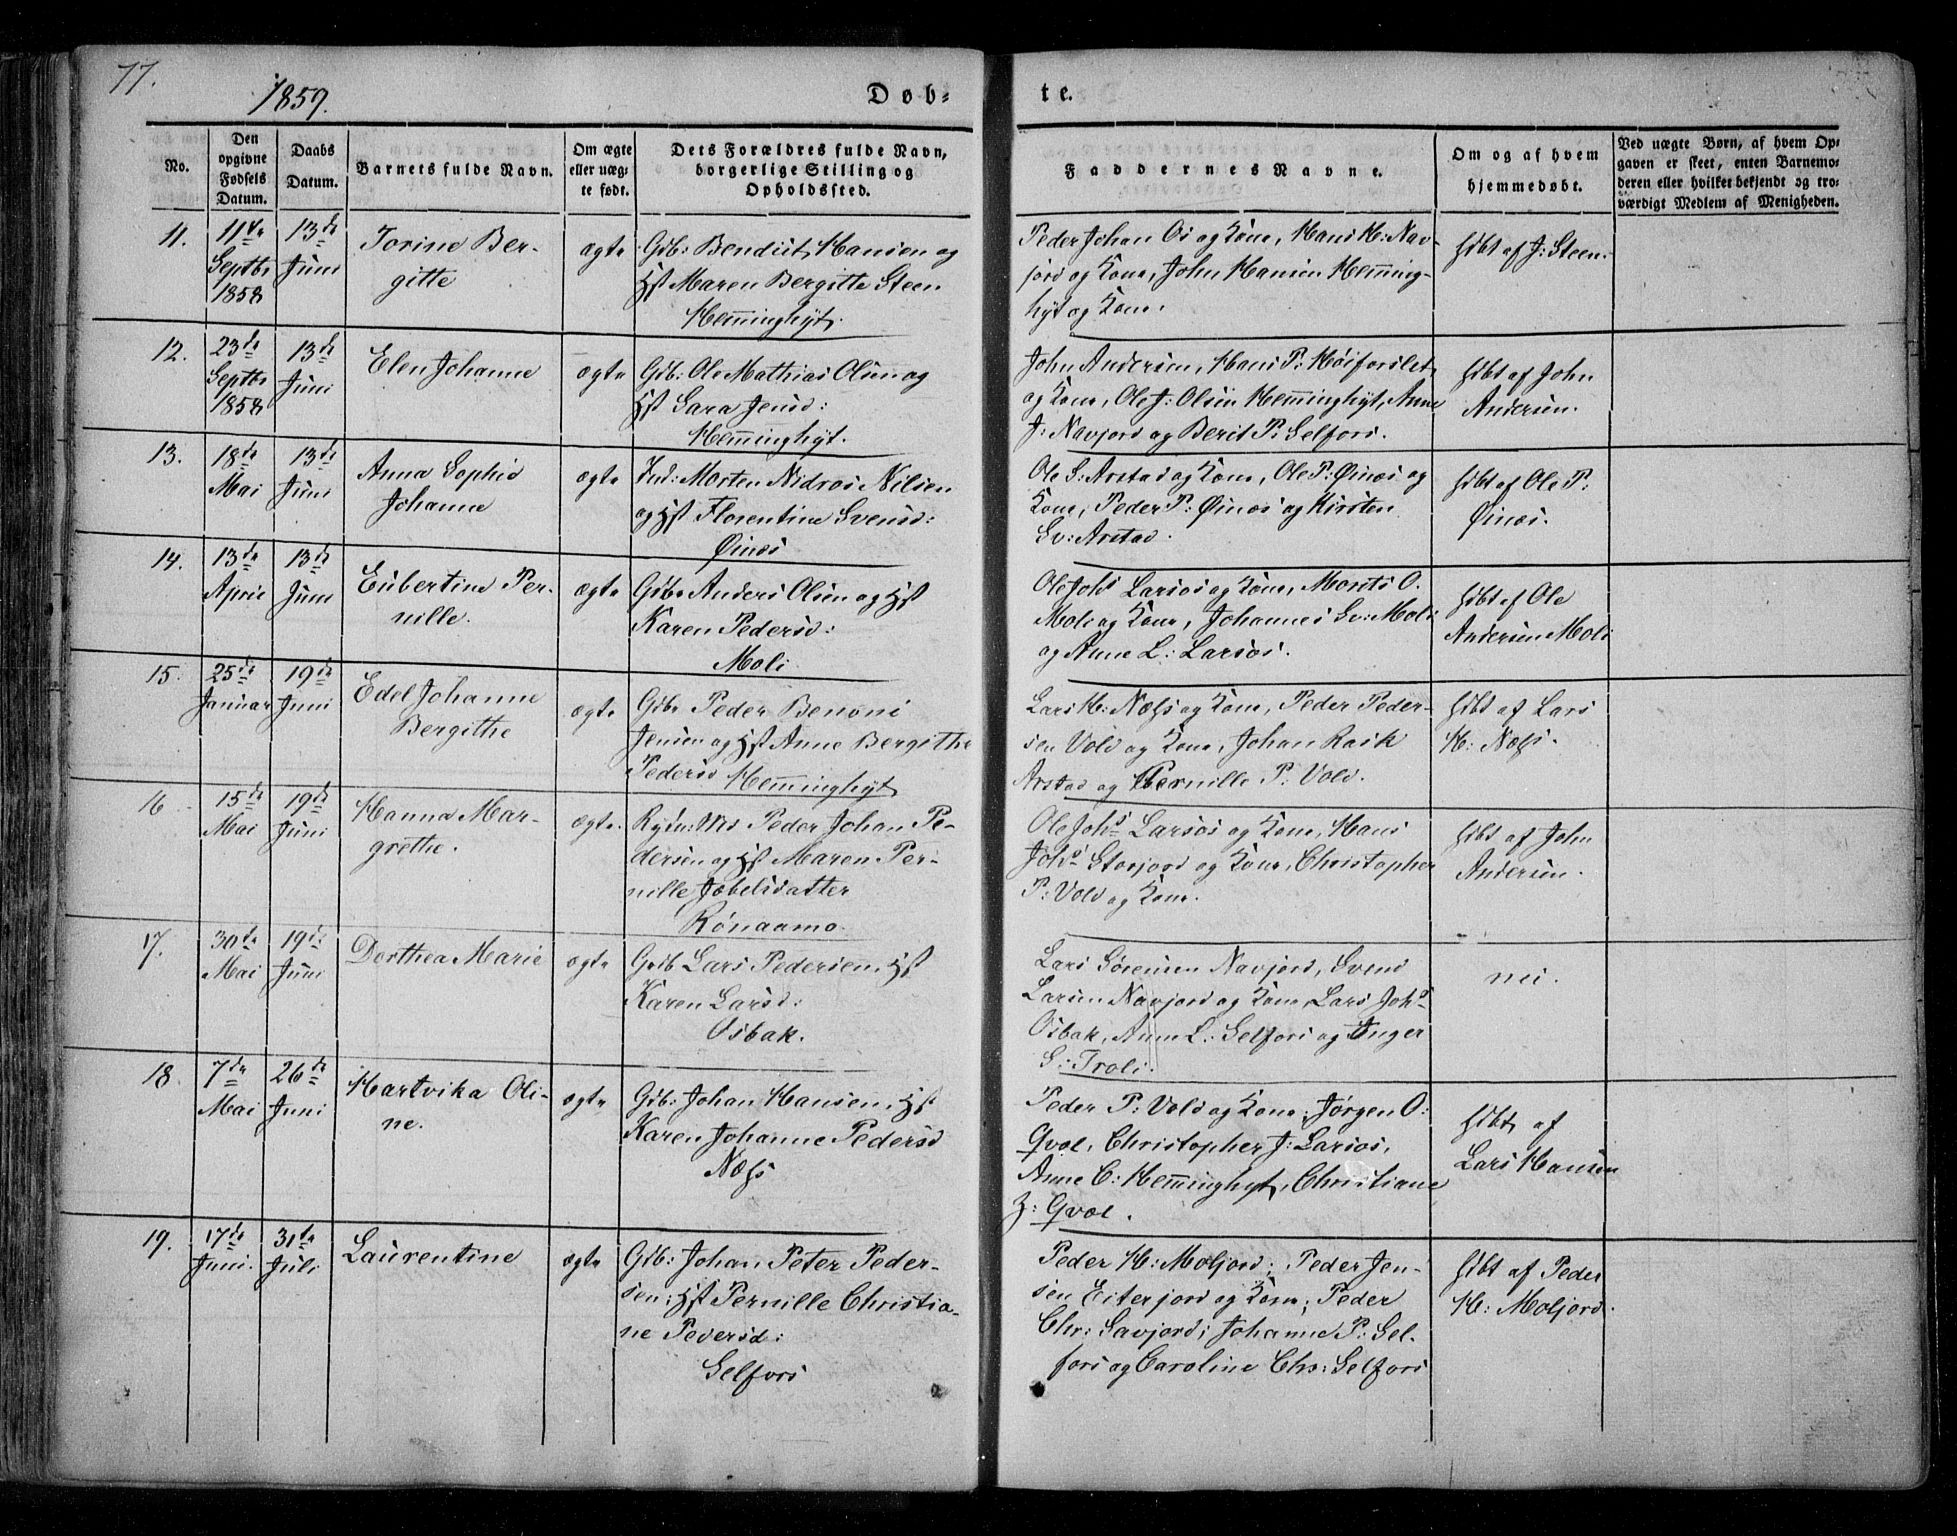 77.
1859.
Døb-
te.
No.
Den opgivne Fødsels Datum.
Daabs Datum.
Barnets fulde Navn.
Om ægte eller uæg-te født.
Dets Forældres fulde Navn, borgerlige Stilling og Opholdssted.
Faddernes Navne.
Om og af hvem hjemmedøbt.
Ved uægte Børn, af hvem Op-
gaven er skeet, enten Barnemo-
deren eller hvilket bekjendt og tro-
værdigt Medlem af Menigheden.
11.
11te Septbr 1858
13de Juni
Torine Ber-
gitte
ægte
Gib: Bendict Hansen og
Hst Maren Bergitte Steen
Hemminghyt.
Peder Johan Os og Kone, Hans H: Nav-
jord og Kone, John Hansen Hemming-
hyt og Kone.
hdbt af J: Steen.
12.
23de Septbr 1858
13de Juni
Elen Johanne
ægte
Gib: Ole Mathias Olsen og
Hst Sara Jensd:
Hemminghyt.
John Andersen, Hans P: Høiforslet
og Kone, Ole J: Olsen Hemminghyt, Anne
J: Navjord og Berit P: Selfors.
hdbt af John
Andersen.
13.
18de Mai
13de Juni
Anna Sophie
Johanne
ægte
Ind: Morten Nidros Nilsen
og Hst Florentine Svensd:
Øinæs
Ole S: Arstad og Kone, Ole P: Øinæs og
Kone, Peder P: Øinæs og Kirsten
Sv: Arstad.
hdbt af Ole P:
Øinæs.
14.
13de April
13de Juni
Eubertine Per-
nille.
ægte
Gdbr Anders Olsen og Hst
Karen Pedersd:
Moli
Ole Johs Larsos og Kone, Morits O.
Moli og Kone, Johannes Sv: Moli
og Anne L: Larsos.
hdbt af Ole
Andersen Moli
15.
25de Januar
19de Juni
Edel Johanne
Bergithe
ægte
Gdbr Peder Benoni
Jensen og Hst Anne Bergithe
Pedersd Hemminghyt
Lars H: Næss og Kone, Peder Peder-
sen Vold og Kone, Johan Rask
Arstad og Pernille P: Vold.
hdbt af Lars
H: Næss.
16
15de Mai
19de Juni
Hanna Mar-
grethe.
ægte.
Peder Johan Pe-
dersen og Hst Maren Per-
nille Jobelsdatter
Rønaamo.
Ole Johs Larsos og Kone, Hans
Johs Storjord og Kone, Christopher
P: Vold og Kone.
hdbt af John
Andersen.
17.
30te Mai
19de Juni
Dorthea Marie
ægte
Gdb Lars Pedersen, Hst
Karen Larsd:
Osbak.
Lars Sørensen Navjord, Svend
Larsen Navjord og Kone, Lars Johs
Osbak, Anne L: Selfors og Inger
S: Troli.
nei.
18.
7de Mai
26de Juni
Hartvika Oli-
ne.
ægte
Gdb: Johan Hansen, Hst
Karen Johanne Pedersd
Næss
Peder P: Vold og Kone, Jørgen O:
Qvæl, Christopher J: Larsos,
Anne C: Hemminghyt, Christiane
Z: Qvæl.
hdbt af
Lars Hansen
19.
17de Juni.
31te Juli
Laurentine
ægte
Gdb: Johan Peter Peder-
sen, Hst Pernille Christia-
ne Pedersd:
Selfors
Peder H: Moljord, Peder Jen-
sen Eiterjord og Kone, Peder
Chr: Savjord, Johanne P: Sel-
fors og Caroline Chr: Selfors
hdbt af Peder
H: Moljord.